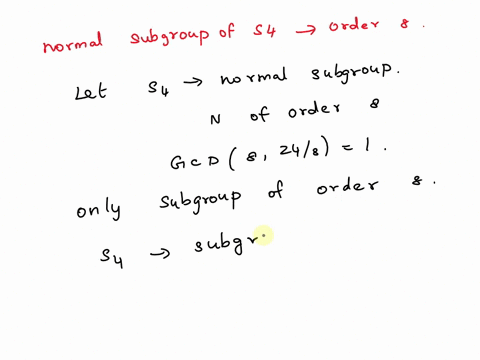 normal subgroup of S4 → order 8.
Let S4 → normal subgroup.
N of order 8
GCD (8, 24/8) = 1.
only subgroup of order 8.
S4 → subgr